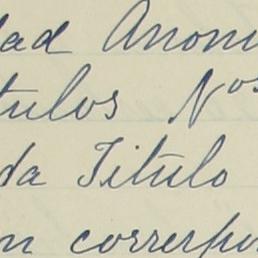 dad Anoni
tulos Nos
da Titulo
n correspon